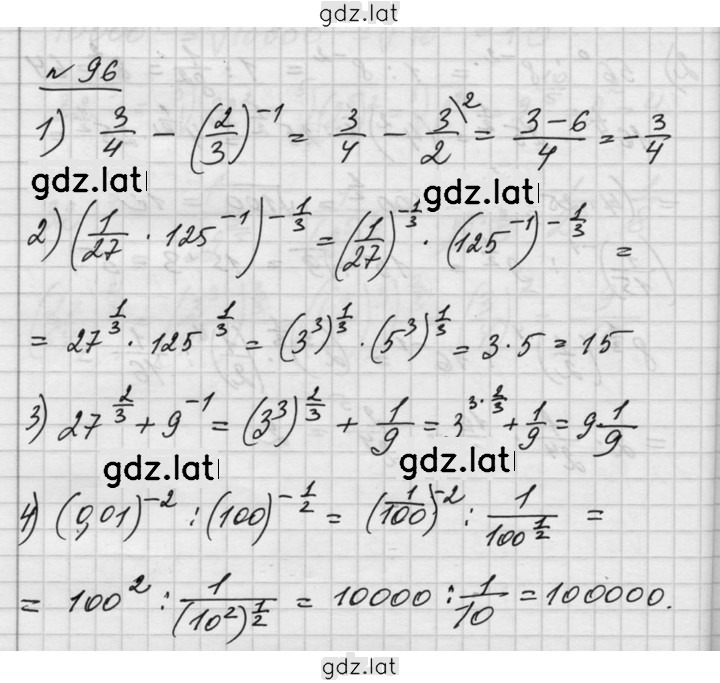 gdz.lat
№ 96
1) 3/4 − (2/3)^−1 = 3/4 − 3/2\2 = (3−6)/4 = −3/4
gdz.lat gdz.lat
2) (1/27 · 125^−1)^−1/3 = (1/27)^−1/3 · (125^−1)^−1/3 =
= 27^1/3 · 125^1/3 = (3^3)^1/3 · (5^3)^1/3 = 3 · 5 = 15
3) 27^2/3 + 9^−1 = (3^3)^2/3 + 1/9 = 3^3·2/3 + 1/9 = 9 1/9
gdz.lat gdz.lat
4) (0,01)^−2 : (100)^−1/2 = (1/100)^−2 : 1/100^1/2 =
= 100^2 : 1/(10^2)^1/2 = 10000 : 1/10 = 100000.
gdz.lat